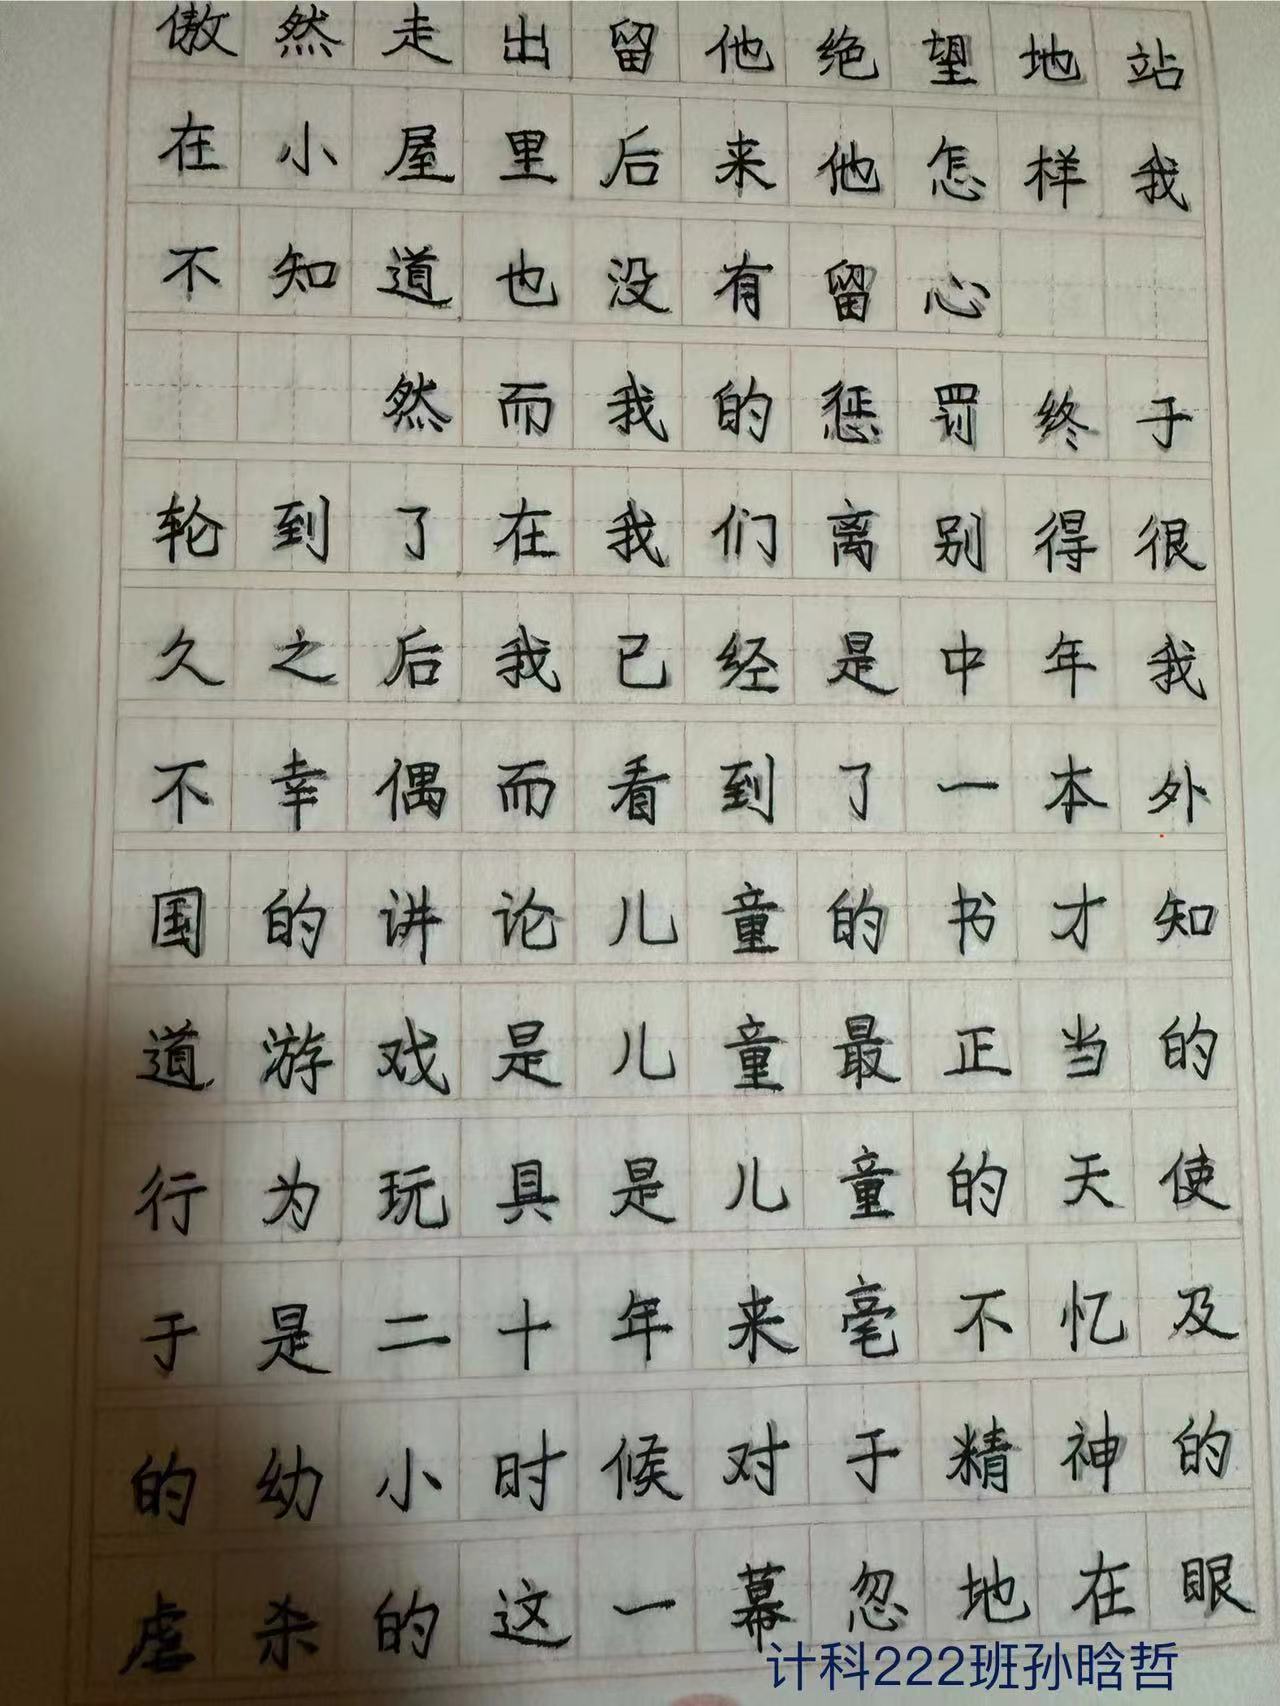 傲然走出留他绝望地站
在小屋里后来他怎样我
不知道也没有留心
然而我的惩罚终于
轮到了在我们离别得很
久之后我已经是中年我
不幸偶而看到了一本外
国的讲论儿童的书才知
道游戏是儿童最正当的
行为玩具是儿童的天使
于是二十年来毫不忆及
的幼小时候对于精神的
虐杀的这一幕忽地在眼
计科222班孙晗哲